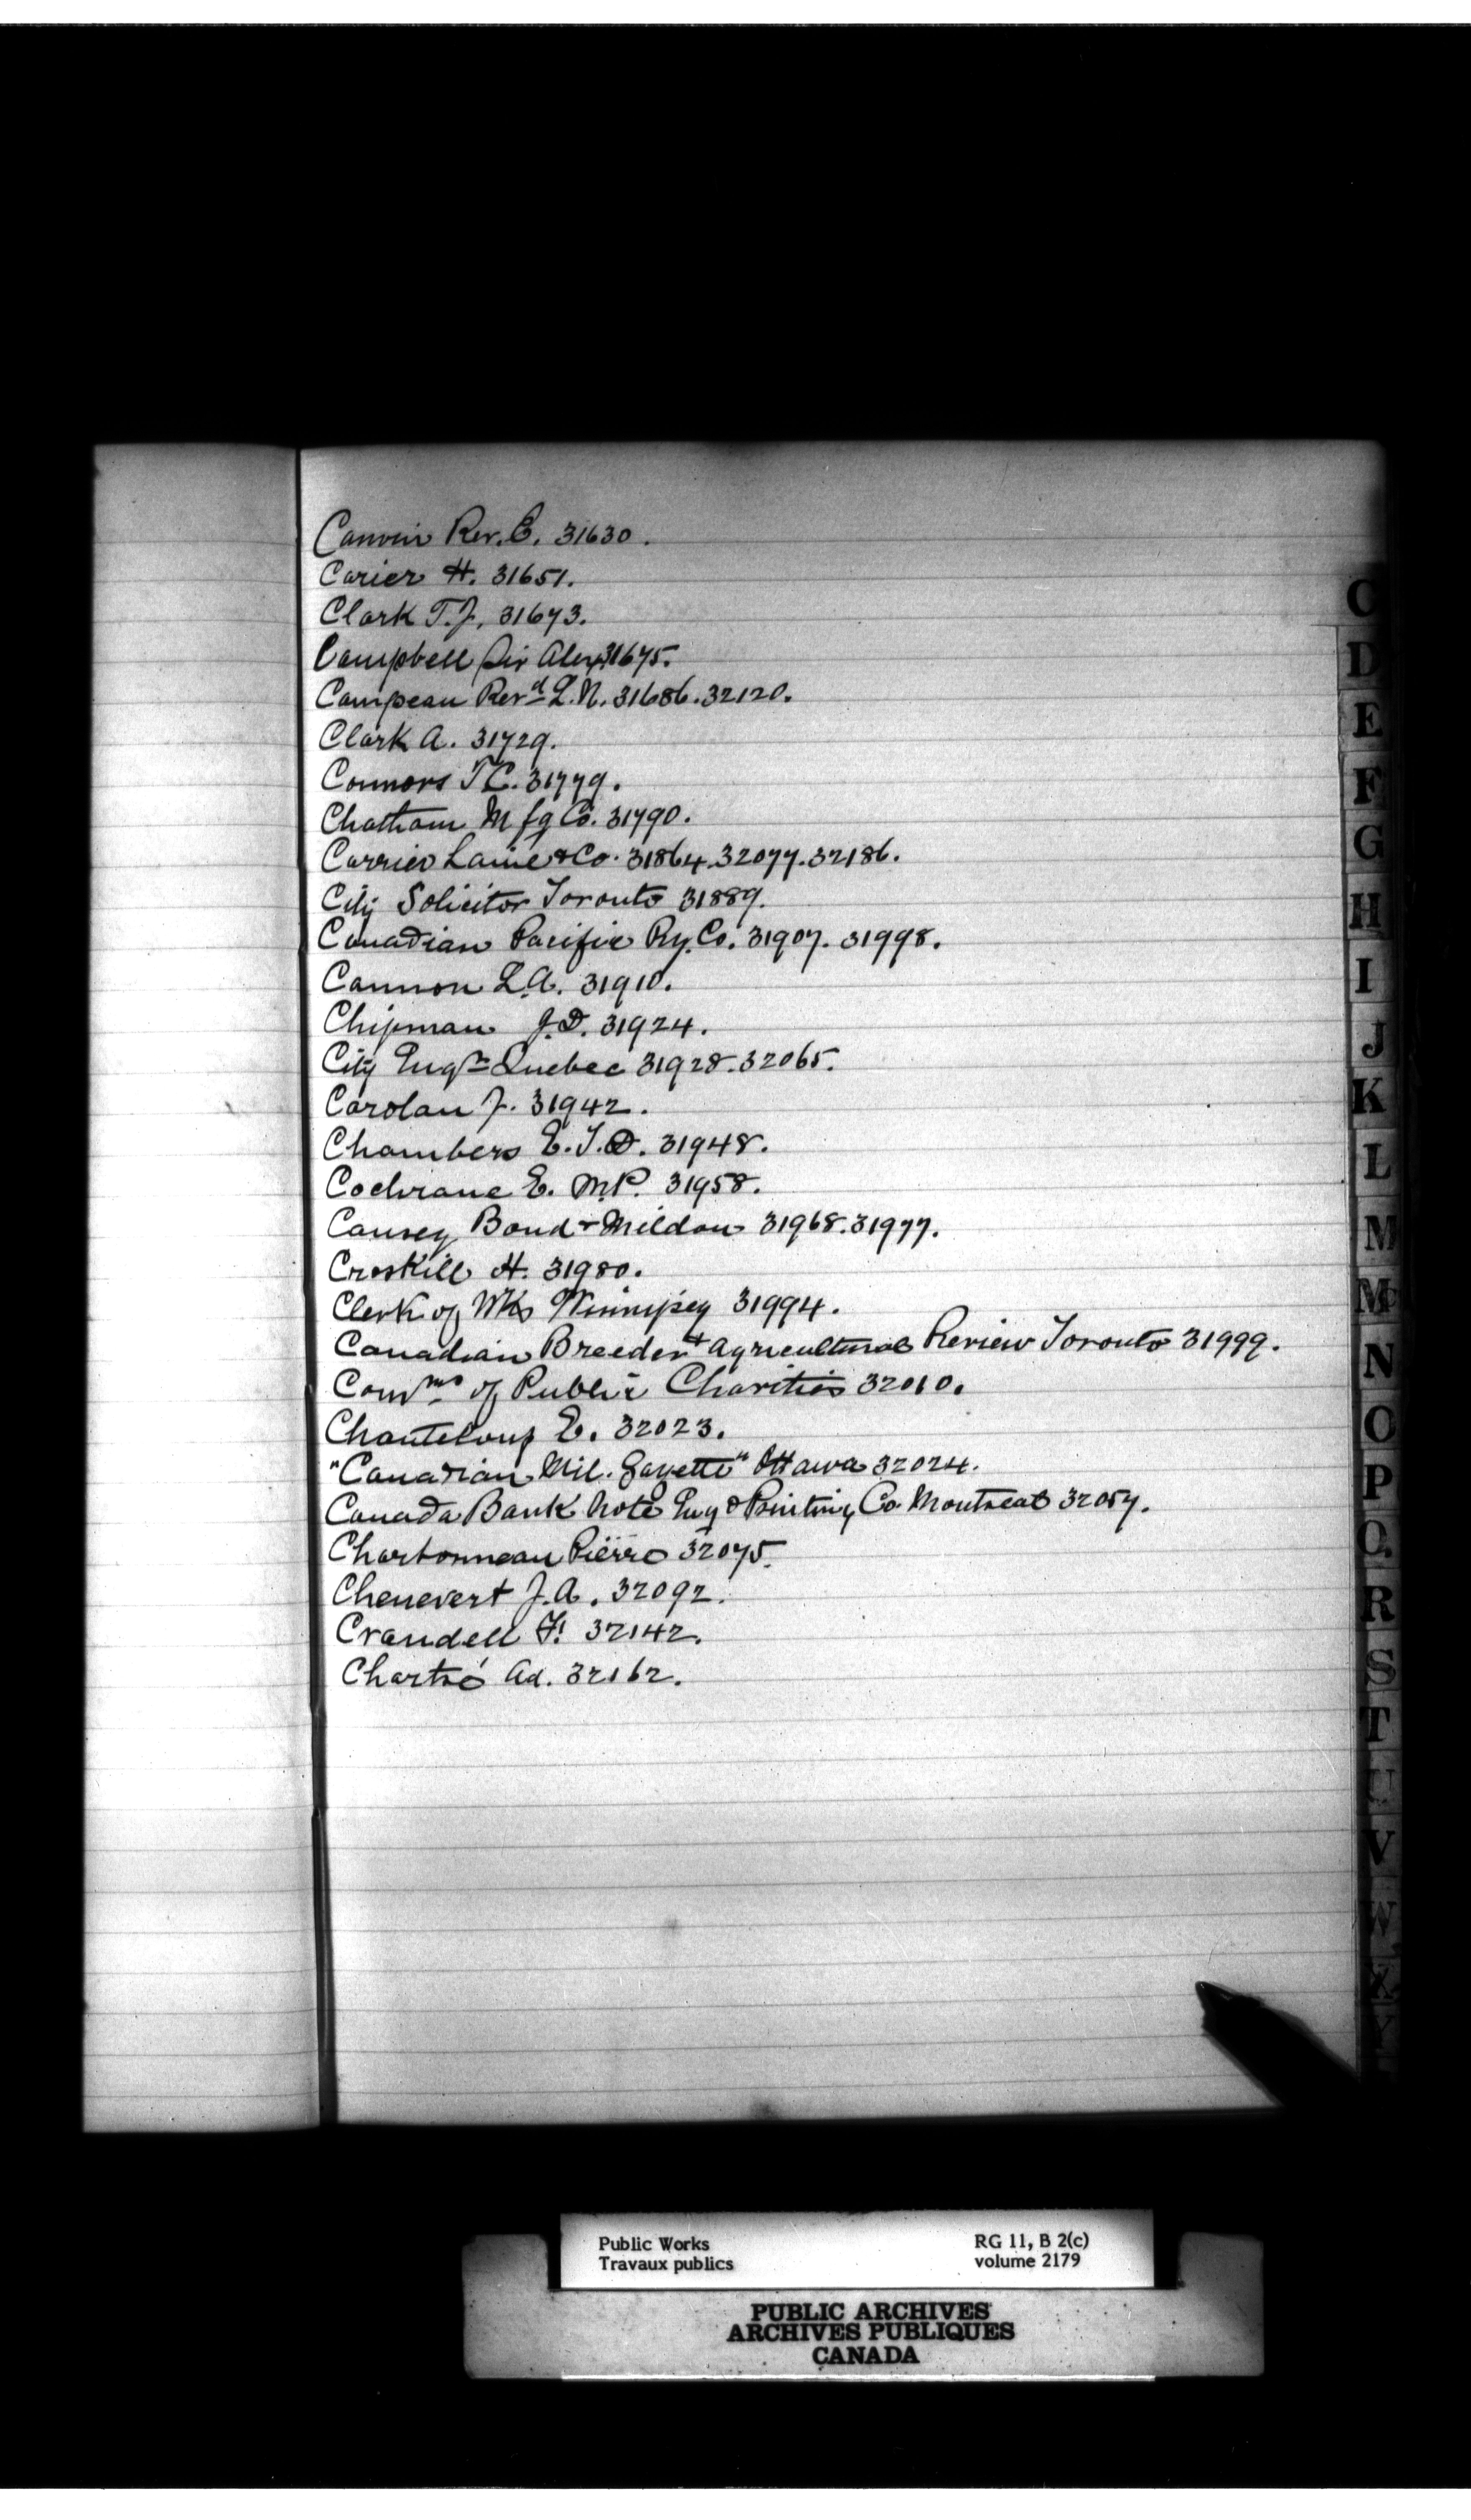 Canvin Rev. E. 31630.
Carier H. 31651.
Clark T.J. 31673.
Campbell Sir Alex 31675.
Campeau Revd L.N. 31686. 32120.
Clark A. 31729.
Connors T C. 31779.
Chatham Mfg Co. 31790.
Carrier Lainé & Co. 31864. 32077. 32186.
City Solicitor Toronto 31889.
Canadian Pacific Ry. Co. 31907. 31998.
Cannon L.A. 31910.
Chipman J.D. 31924.
City Engr Quebec 31928. 32065.
Carolan J. 31942.
Chambers E.T.D. 31948.
Cochrane E. M.P. 31958.
Causey Bond & Mildon 31968. 31977.
Croskill H. 31980.
Clerk of Wks Winnipeg 31994.
Canadian Breeder & Agricultural Review Toronto 31999.
Comms of Public Charities 32010.
Chanteloup E. 32023.
"Canadian Mil. Gazette" Ottawa 32024.
Canada Bank Note Eng & Printing Co. Montreal 32057.
Charbonneau Pierre 32075.
Chenevert J.A. 32092.
Crandell F. 32142.
Chartré Ad. 32162.
C
D
E
F
G
H
I
J
K
L
M
Mc
N
O
P
Q.
R
S
T
U
V
W
X
Y
Public Works RG 11, B 2(c)
Travaux publics volume 2179
PUBLIC ARCHIVES
ARCHIVES PUBLIQUES
CANADA